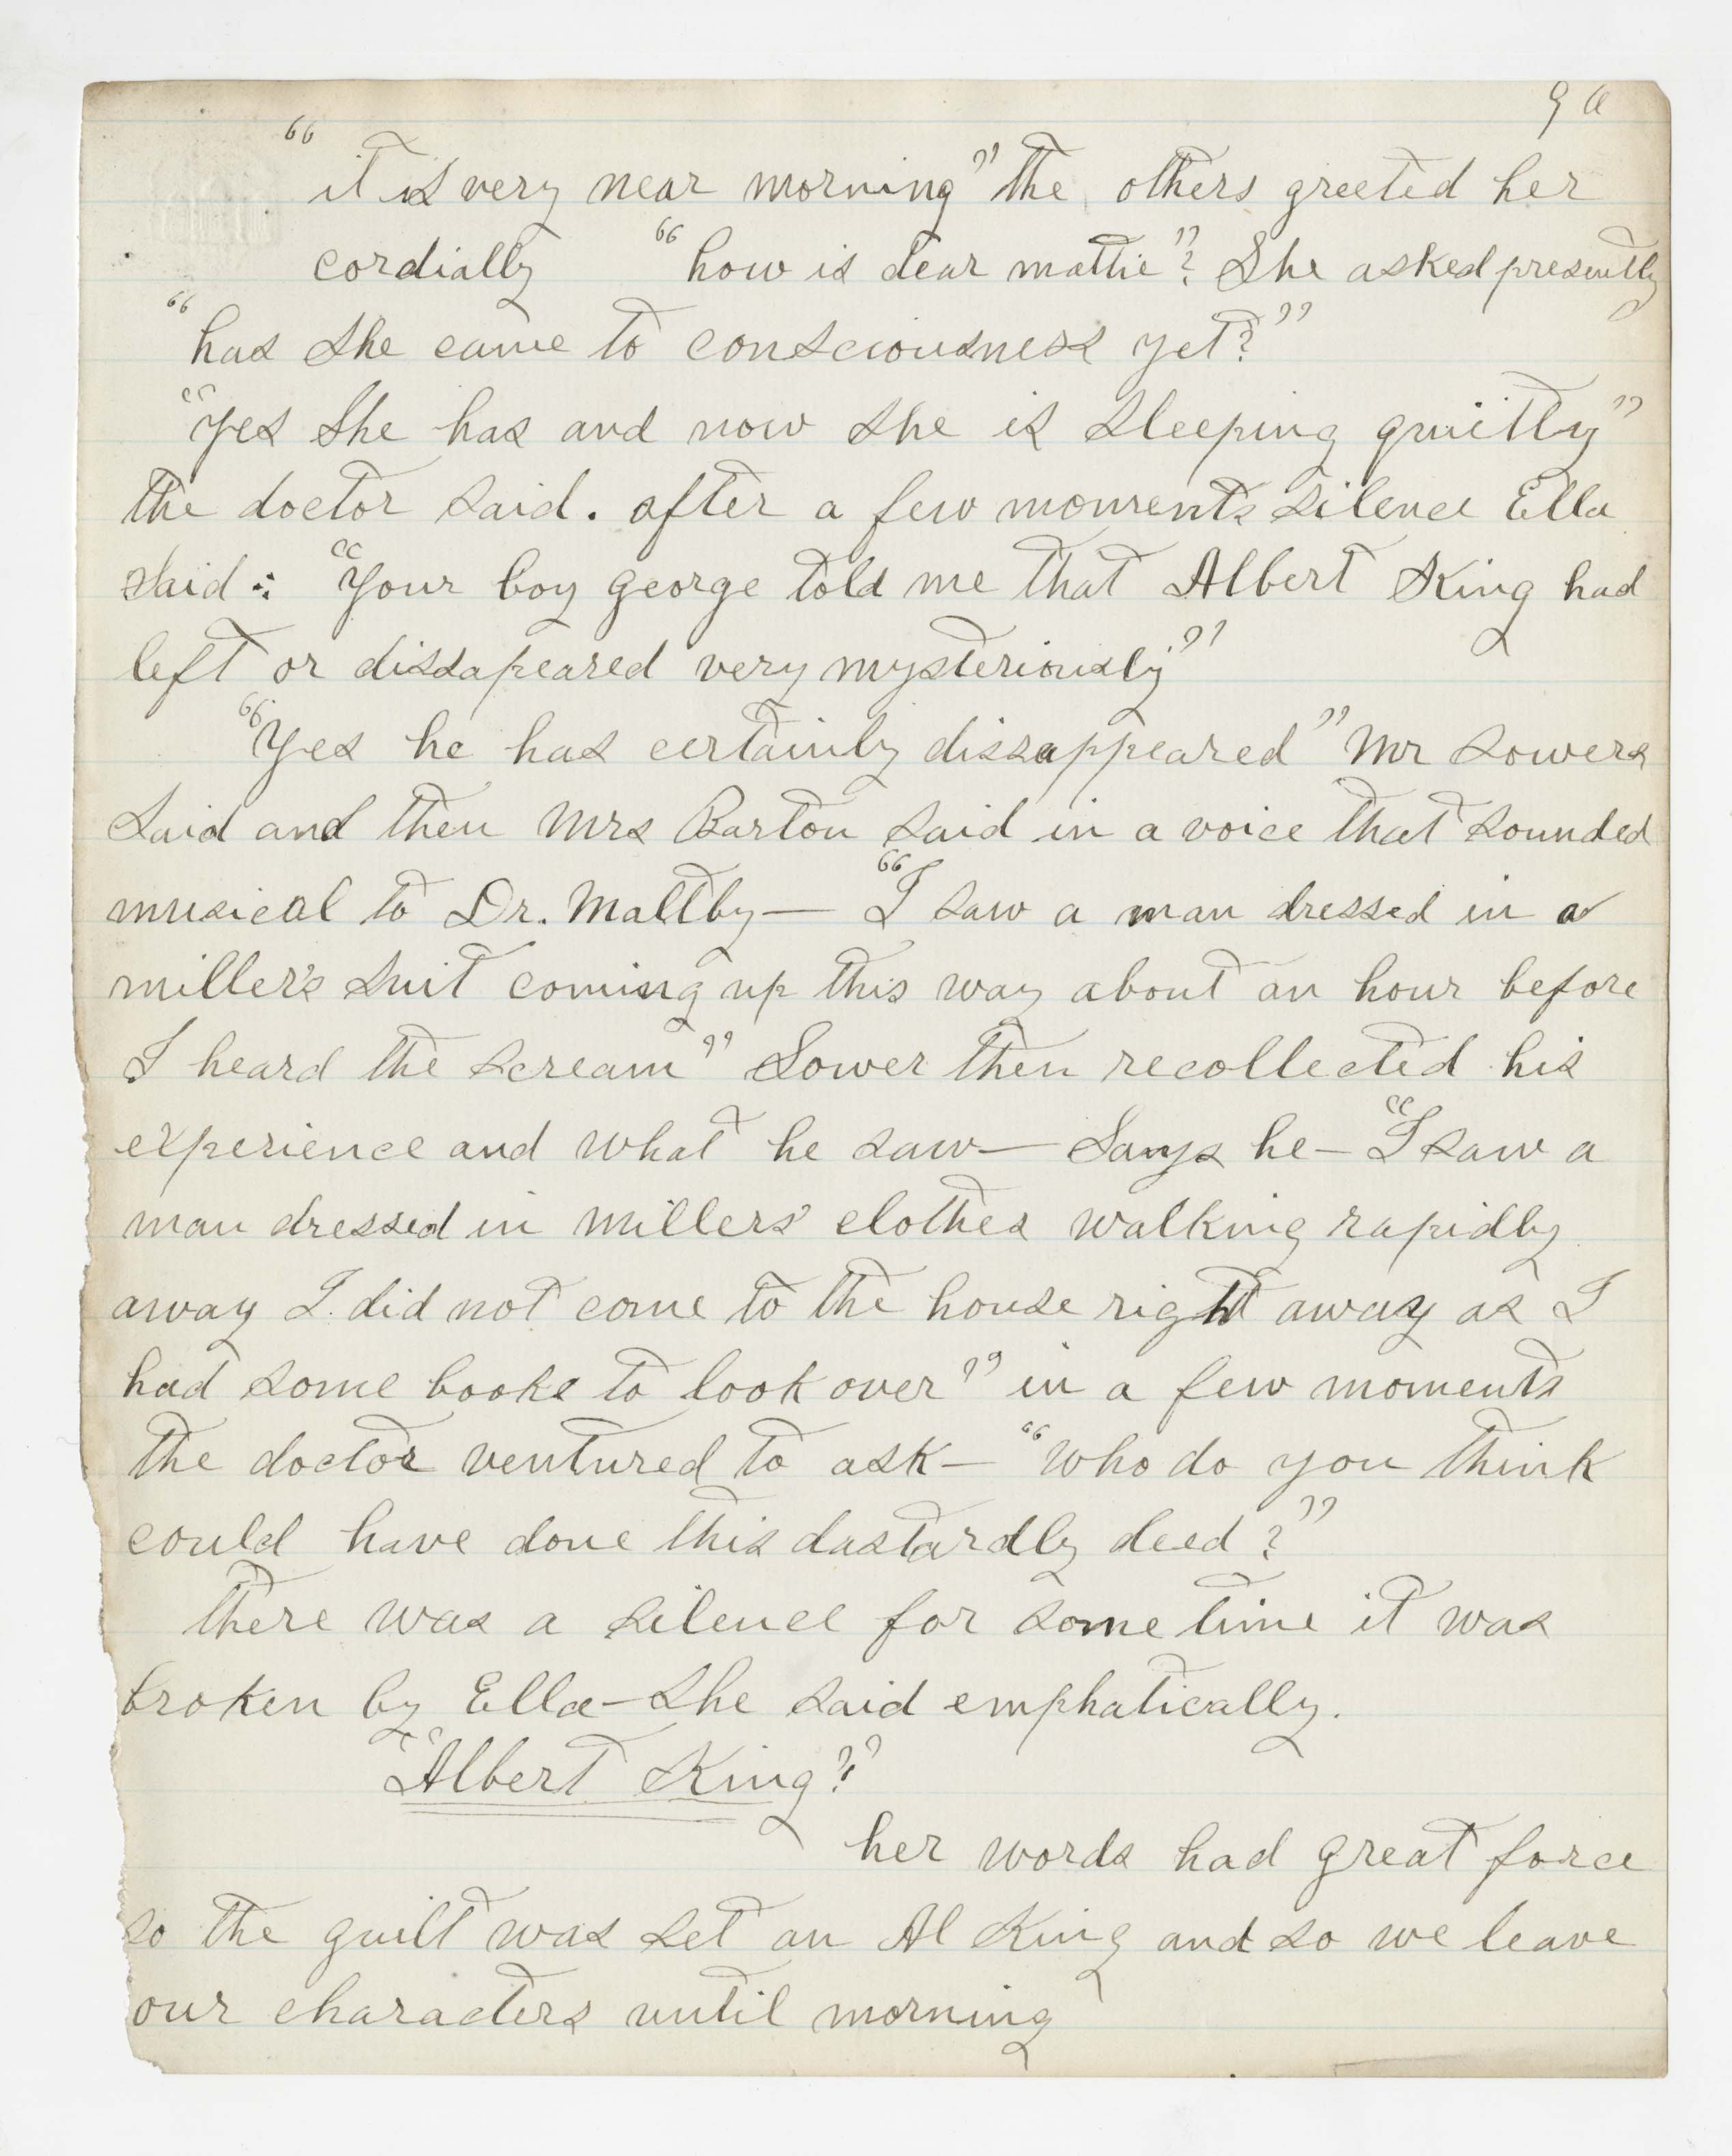 9 a
"it is very near morning" the others greeted her
cordially "how is dear mattie"? She asked presently
"has she came to consciousness yet?"
"Yes She has and now she is sleeping quiitly"
the doctor said. after a few moments silence Ella
said: "Your boy george told me that Albert King had
left or dissapeared very mysteriously"
"Yes he has certainly dissappeared" Mr Sowers
said and then Mrs Barton said in a voice that sounded
musical to Dr. Maltby— "I saw a man dressed in a
miller's suit coming up this way about an hour before
I heard the scream" Sower then recollected his
experience and what he saw— Says he— "I saw a
man dressed in millers' clothes walking rapidly
away I did not come to the house right away as I
had some books to look over" in a few moments
the doctor ventured to ask— "who do you think
could have done this dastardly deed?"
there was a silence for some time it was
broken by Ella— she said emphatically.
"Albert King?"
her words had great force
so the guilt was set an Al King and so we leave
our characters until morning